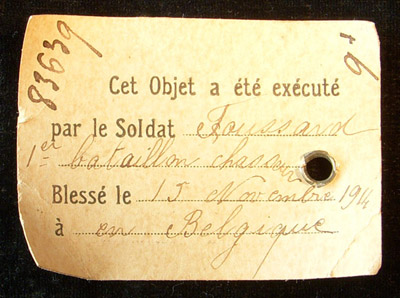 83639
+ 6
Cet Objet a été exécuté
par le Soldat Foussard
1er bataillon chasseur
Blessé le 15 Novembre 1914
à en Belgique